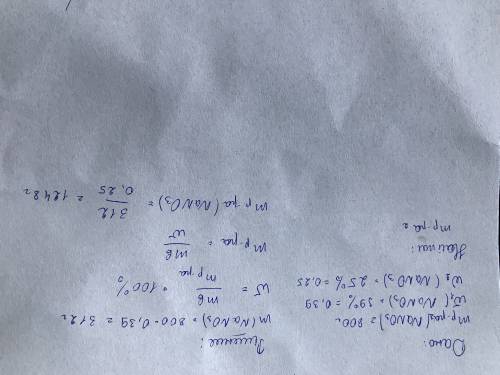 Дано:
mр-ра(NaNO₃) = 800г
w₁(NaNO₃) = 39% = 0,39
w₂(NaNO₃) = 25% = 0,25
Найти:
mр-ра₂
Решение:
m(NaNO₃) = 800 · 0,39 = 312г
w = mв / mр-ра · 100%
mр-ра = mв / w
mр-ра(NaNO₃) = 312 / 0,25 = 1248г